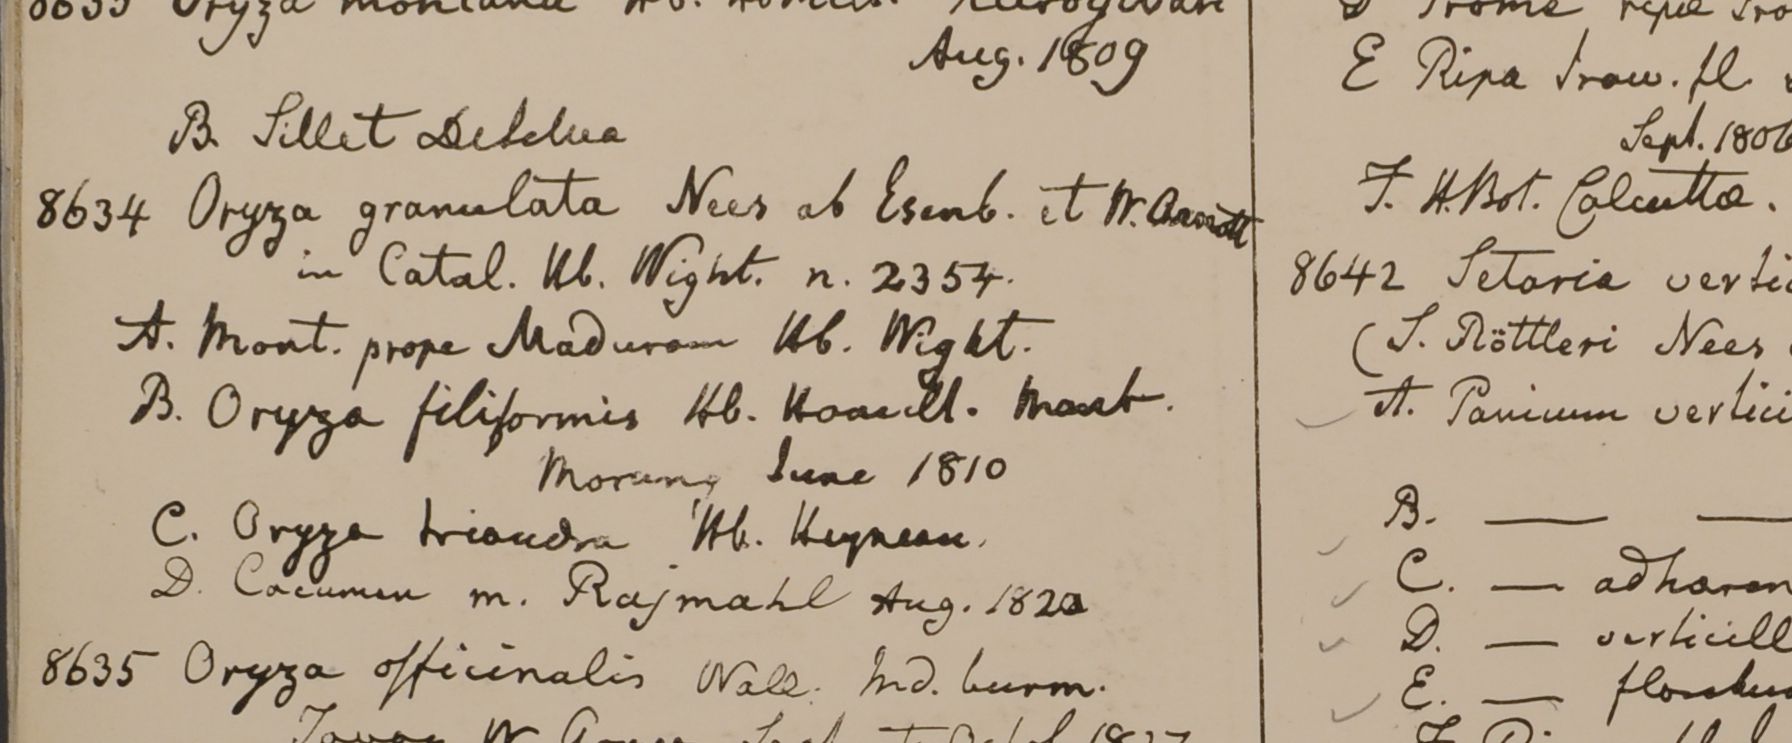 8633 Oryza montana Hb.
Aug. 1809
B. Sillet Desilva
8634 Oryza granulata Nees ab Esenb. et W. Arnott
in Catal. Hb. Wight. n. 2354.
A. Mont. prope Maduram Hb. Wight.
B. Oryza filiformis Hb. Hamilt.
Morung June 1810
C. Oryza triandra Hb. Heynean.
D. Cacumen m. Rajmahl Aug. 1820
8635 Oryza officinalis Wall. Ind. burm.
Tavoy W. Gomez Sept. et Octob. 1827
D Prome
E Ripa Iraw. fl.
Sept. 1826
F. H. Bot. Calcutta.
8642 Setaria vertic
(S. Röttleri Nees
A. Panicum vertici
B. — —
C. — adhæren
D. — verticill
E. —